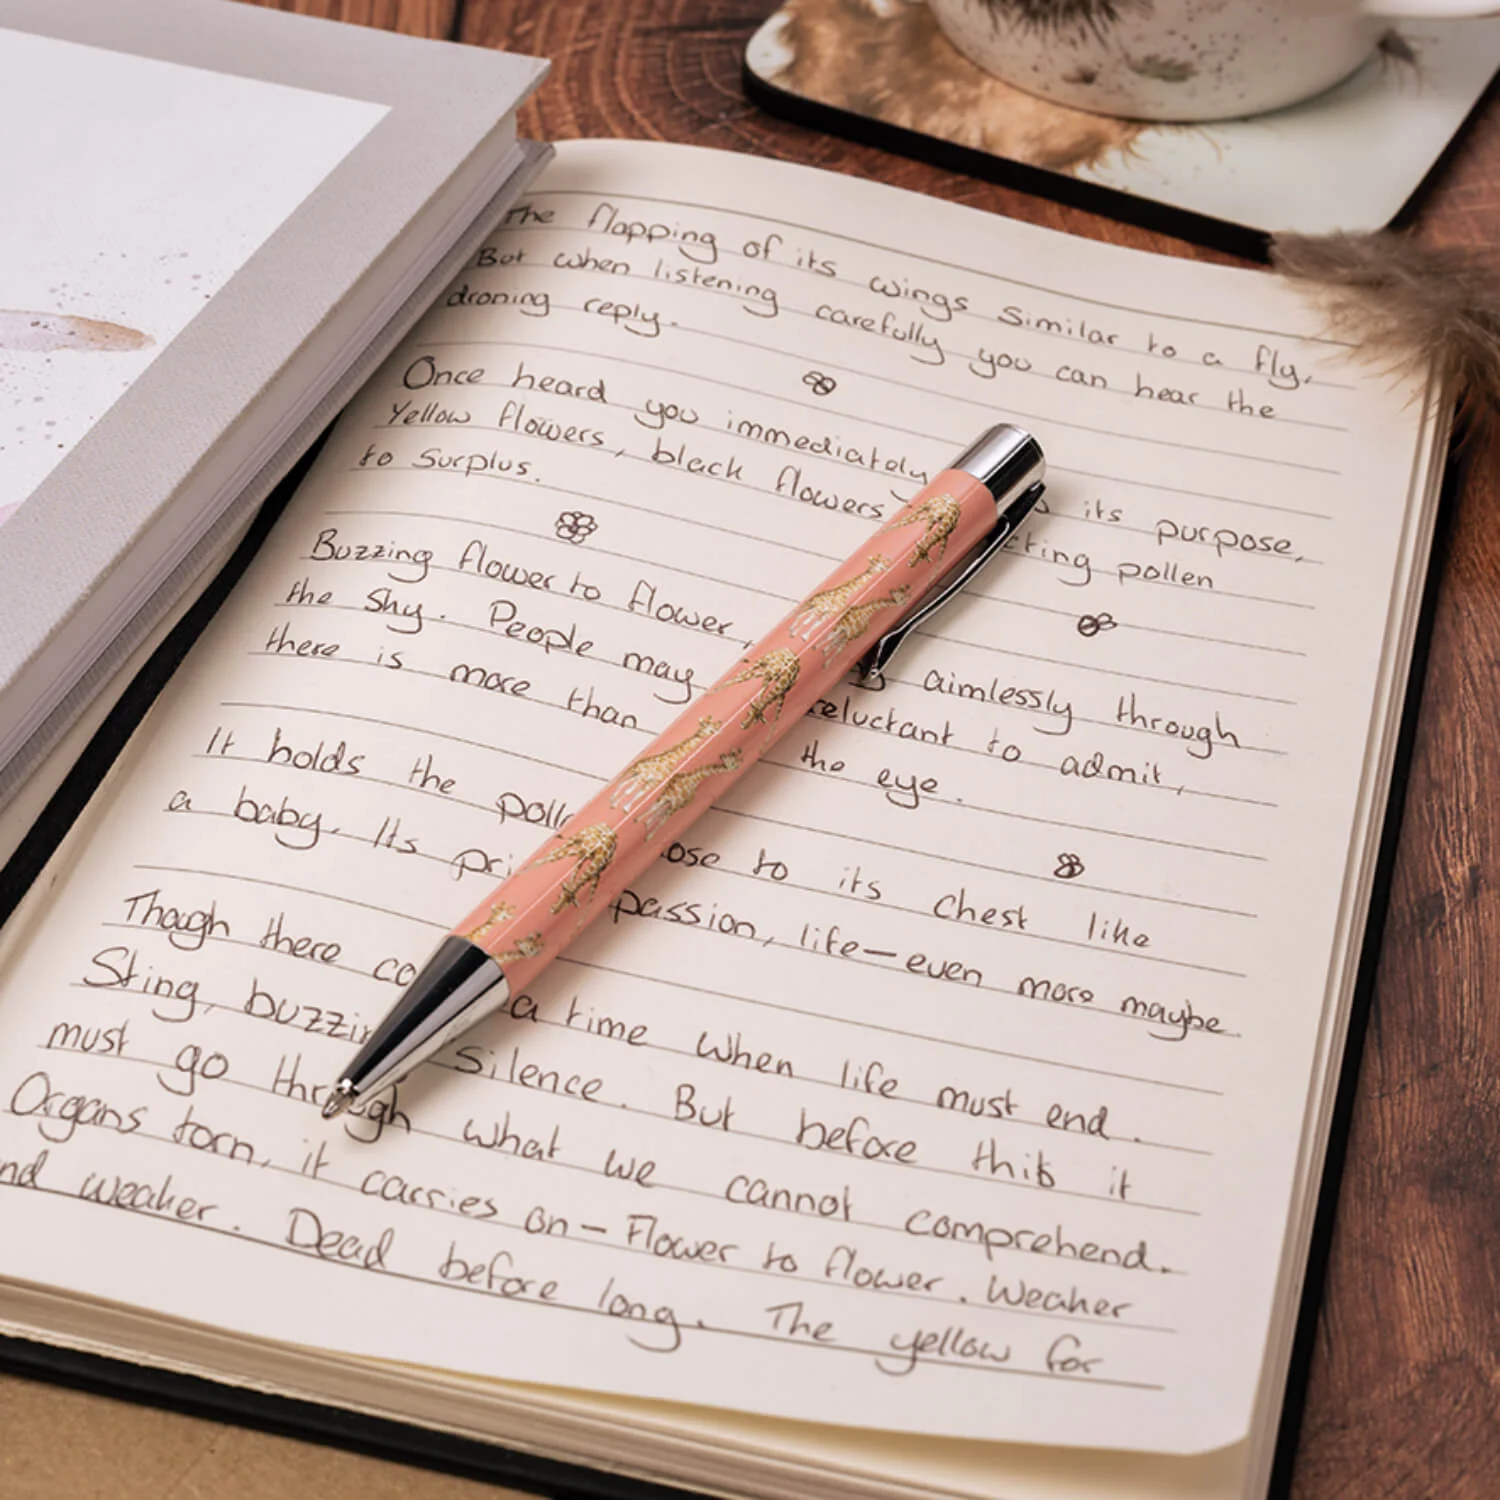 The flapping of its wings similar to a fly,
But when listening carefully you can hear the
droning reply.
Once heard you immediately its purpose,
Yellow flowers, black flowers pollen
to surplus.
Buzzing flower to flower, aimlessly through
the shy. People may reluctant to admit,
there is more than the eye.
It holds the to its chest like
a baby. Its passion, life—even more maybe.
Though there a time when life must end.
Sting, silence. But before this it
must go through what we cannot comprehend.
Organs torn, it carries on – Flower to flower. Weaker
weaker. Dead before long. The yellow for